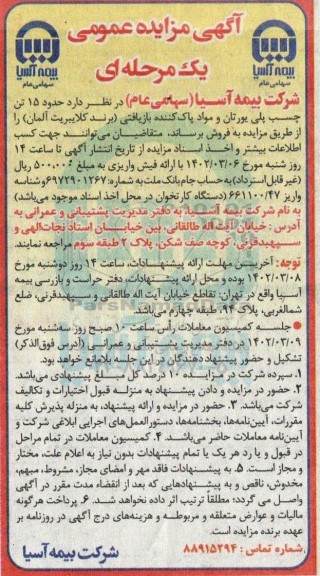 آگهی مزایده عمومی
یک مرحله ای
بیمه آسیا
سهامی عام
بیمه آسیا
سهامی عام
شرکت بیمه آسیا (سهامی عام) در نظر دارد حدود ۱۵ تن
چسب پلی یورتان و مواد پاک‌کننده بازیافتی (برند کلایبریت آلمان) را
از طریق مزایده به فروش برساند، متقاضیان می‌توانند جهت کسب
اطلاعات بیشتر و اخذ اسناد مزایده از تاریخ انتشار آگهی تا ساعت ۱۴
روز شنبه مورخ ۱۴۰۲/۰۳/۰۶ با ارائه فیش واریزی به مبلغ ۵۰۰.۰۰۰ ریال
(غیر قابل استرداد) به حساب جام بانک ملت به شماره: ۶۹۷۲۹۰۱۲۶۷ و شناسه
واریز ۶۶۱۱۰۰/۴۷ (دستگاه کارتخوان در محل اخذ اسناد موجود می‌باشد)
به نام شرکت بیمه آسیا، به دفتر مدیریت پشتیبانی و عمرانی به
آدرس: خیابان آیت اله طالقانی، بین خیابان استاد نجات‌الهی و
سپهبدقرنی، کوچه صف شکن، پلاک ۲ طبقه سوم مراجعه نمایند.
توجه: آخرین مهلت ارائه پیشنهادات، ساعت ۱۴ روز دوشنبه مورخ
۱۴۰۲/۰۳/۰۸ بوده و محل ارائه پیشنهادات، دفتر حراست و بازرسی بیمه
آسیا واقع در تهران: تقاطع خیابان آیت اله طالقانی و سپهبدقرنی، ضلع
شمالغربی، پلاک ۹۴، طبقه چهارم می‌باشد.
- جلسه کمیسیون معاملات رأس ساعت ۱۰ صبح روز سه‌شنبه مورخ
۱۴۰۲/۰۳/۰۹ در دفتر مدیریت پشتیبانی و عمرانی (آدرس فوق‌الذکر)
تشکیل و حضور پیشنهاد دهندگان در این جلسه بلامانع خواهد بود.
۱. سپرده شرکت در مزایده ۱۰ درصد کل مبلغ پیشنهادی می‌باشد.
۲. حضور در مزایده و دادن پیشنهاد به منزله قبول اختیارات و تکالیف
شرکت می‌باشد. ۳. حضور در مزایده و ارائه پیشنهاد، به منزله پذیرش کلیه
مقررات، آیین‌نامه‌ها، بخشنامه‌ها، دستورالعمل‌های اجرایی ابلاغی شرکت و
آیین‌نامه معاملات حاضر می‌باشد. ۴. کمیسیون معاملات در تمام مراحل
در قبول و یا رد هر یک یا تمام پیشنهادات بدون نیاز به اعلام علت، مختار
و مجاز است. ۵. به پیشنهادات فاقد مهر و امضای مجاز، مشروط، مبهم،
مخدوش، ناقص و به پیشنهادهایی که بعد از انقضاء مدت مقرر در آگهی
واصل می گردد؛ مطلقاً ترتیب اثر داده نخواهد شد. ۶. پرداخت هرگونه
مالیات و عوارض متعلقه و مربوطه و هزینه‌های درج آگهی در روزنامه بر
عهده برنده مزایده است.
شماره تماس: ۸۸۹۱۵۲۹۴
شرکت بیمه آسیا